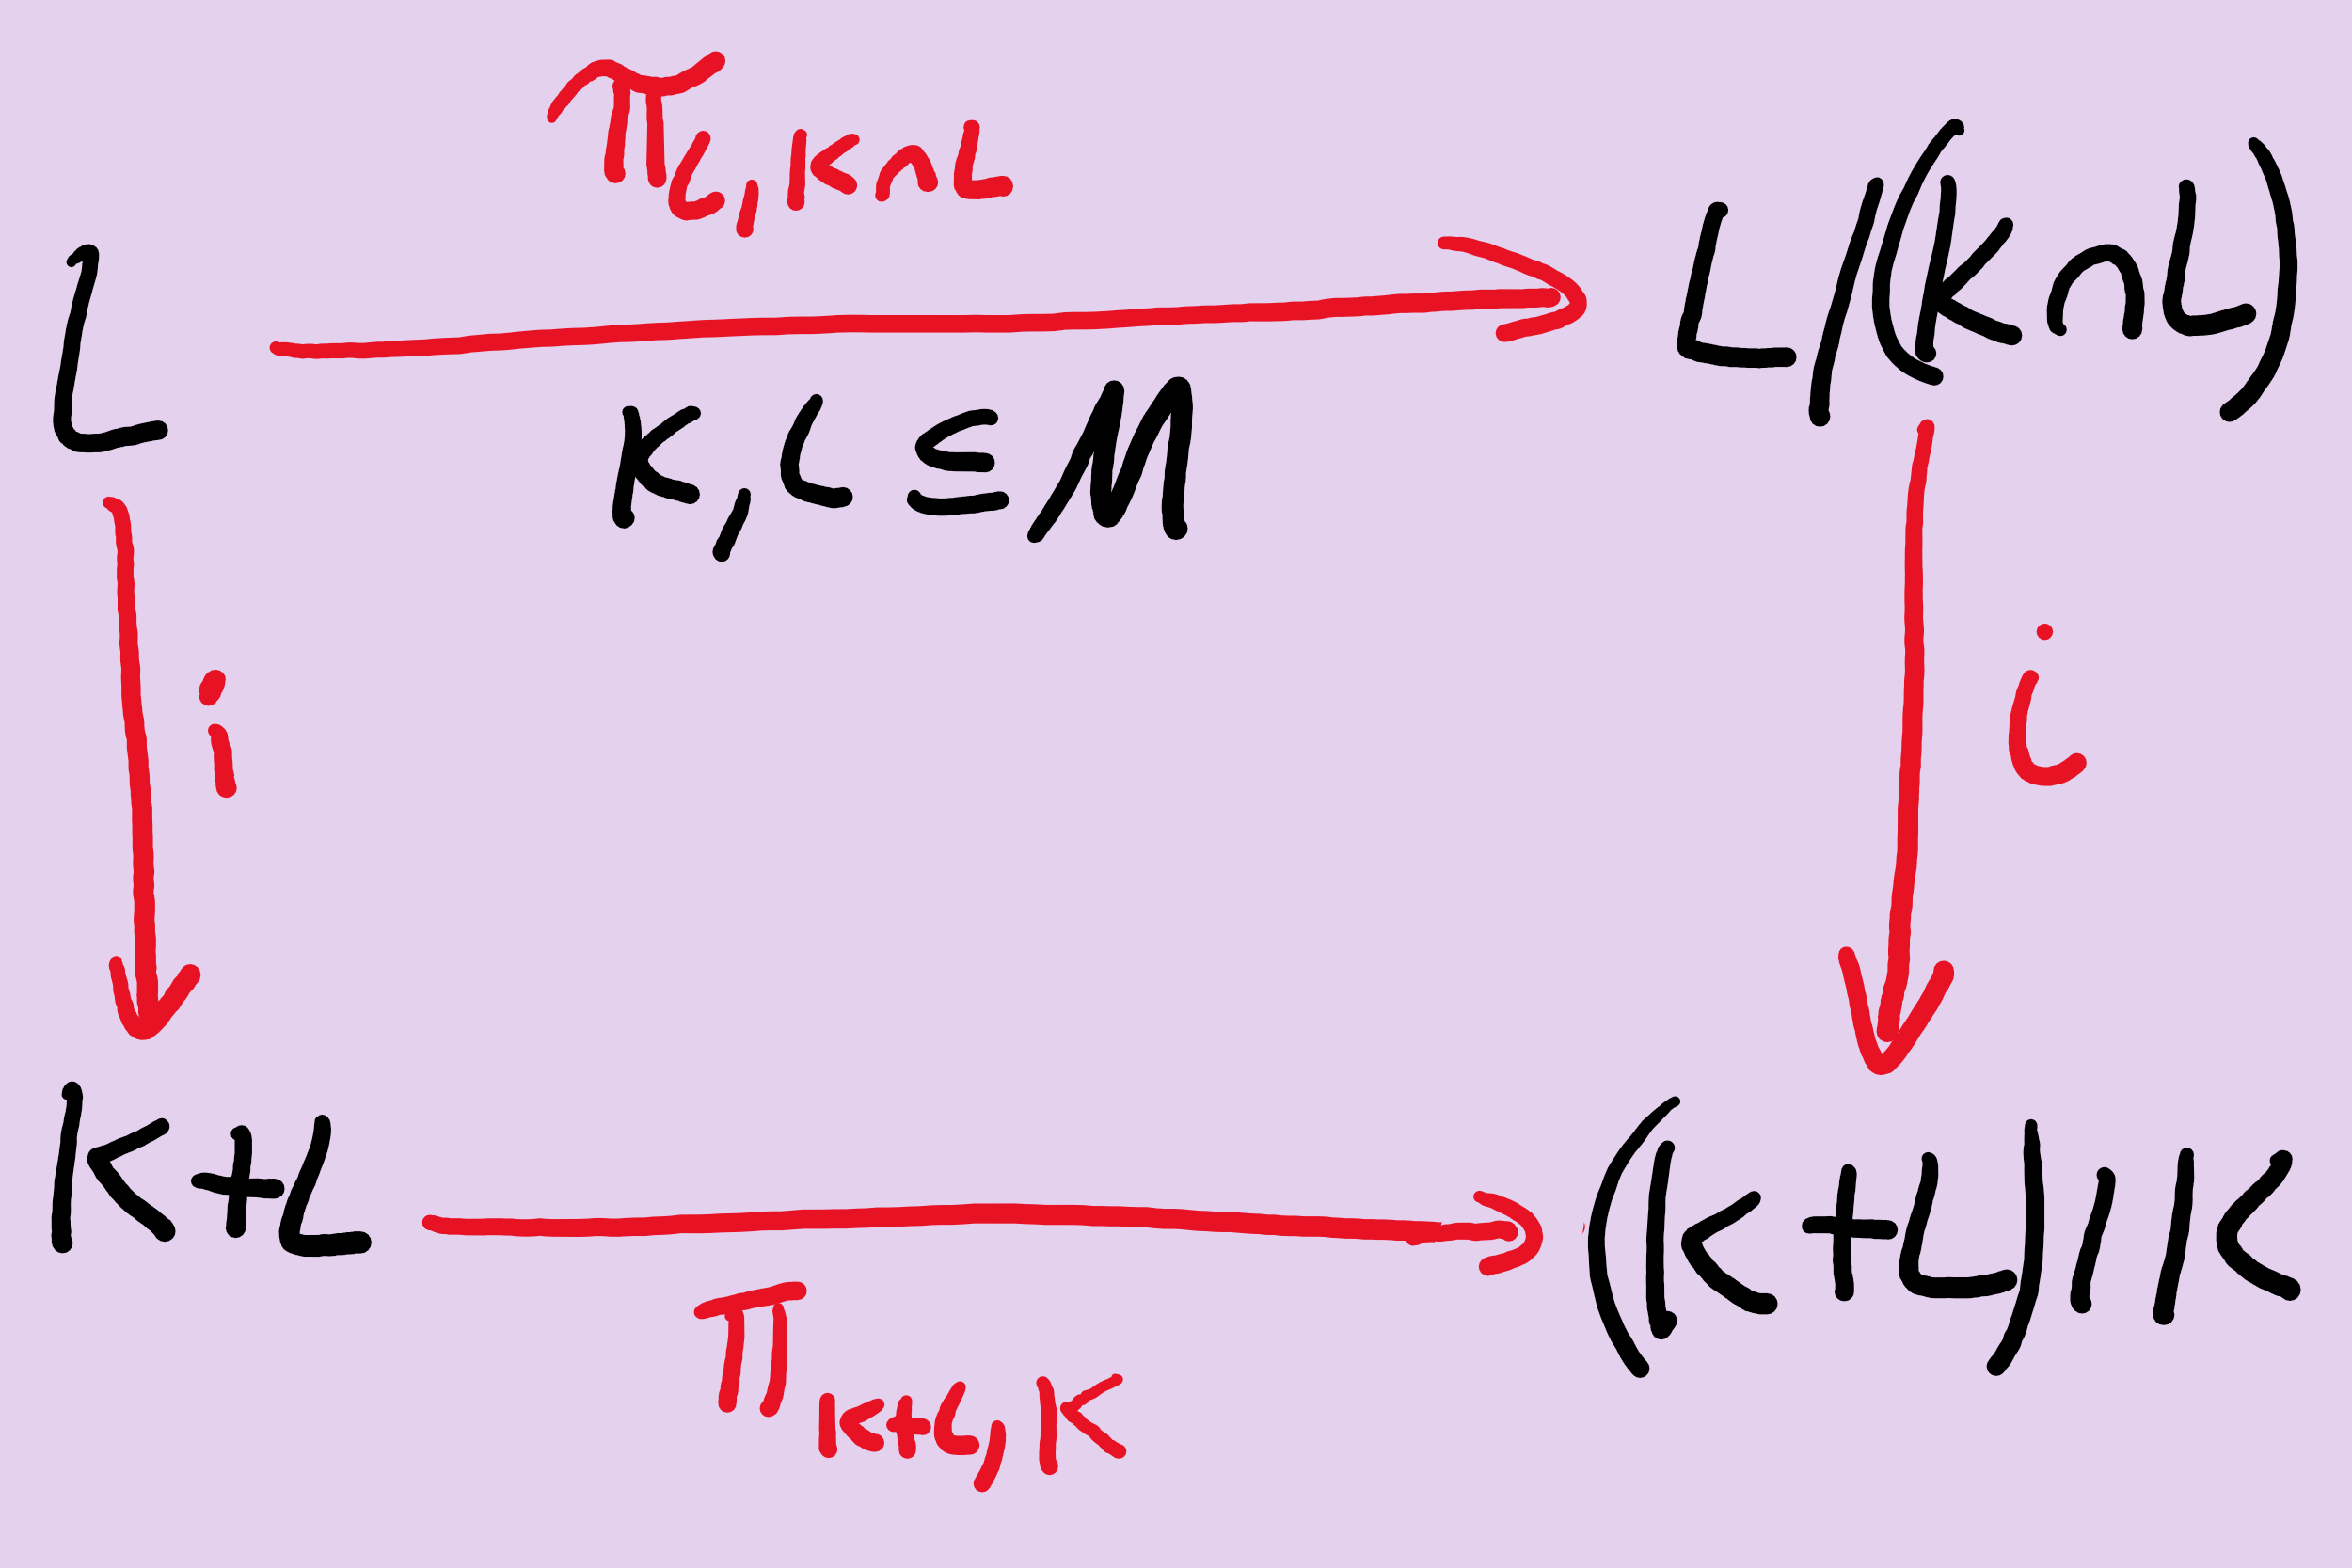 π L, K∩L
L L/(K∩L)
K, L ⊆ M
i i
K+L (K+L)/K
π K+L, K